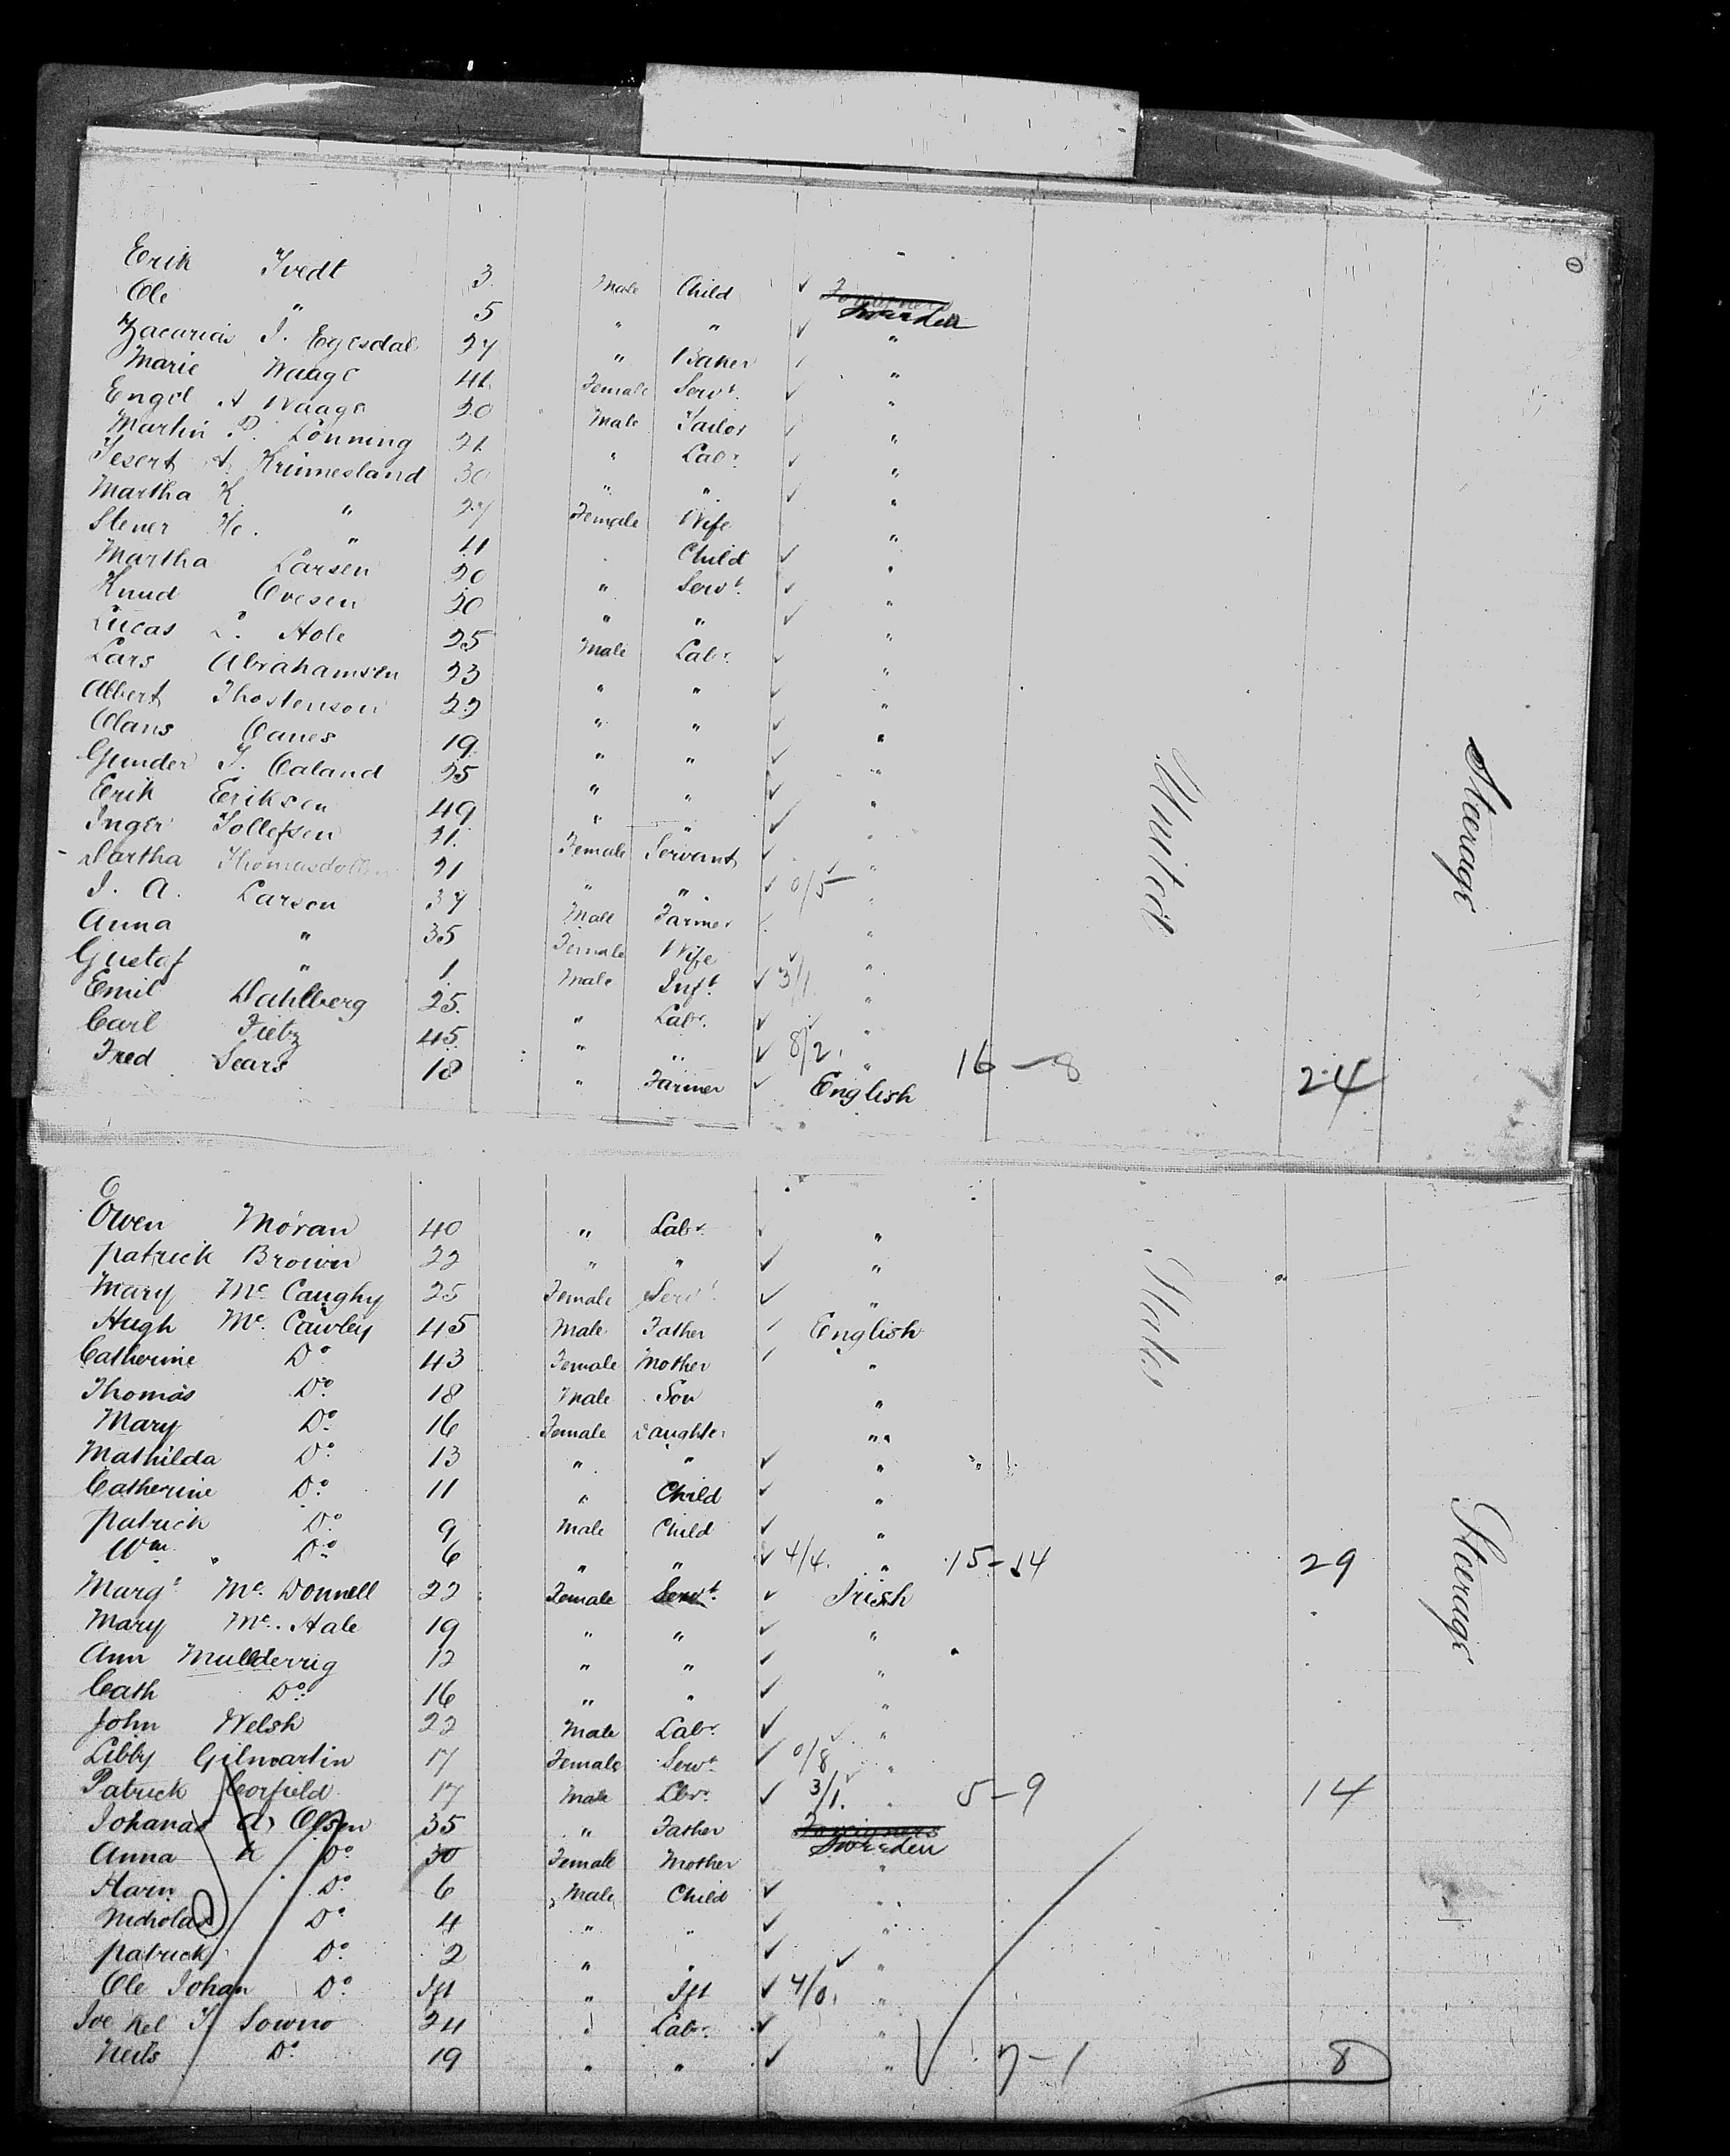 Erik Tvedt 3 Male Child ✓ Foreigners Sweden
Ole " 5 " " ✓ "
Zacarias T. Egesdal 27 " Baker ✓ "
Marie Waage 41 Female Servt. ✓ "
Engel A Waage 20 Male Tailor ✓ "
Martin P. Lönning 21 " Labr. ✓ "
Tesert A. Krümesland 30 " " ✓ "
Martha K. " 27 Female Wife "
Stener He. " 11 Child ✓ "
Martha Larsen 20 " Servt. ✓ "
Knud Ovesen 20 " " ✓ "
Lucas L. Hole 25 Male Labr. ✓ "
Lars Abrahamsen 23 " " ✓ "
Albert Thostenson 22 " " ✓ "
Olans Oanes 19 " " ✓ "
Gunder T. Oaland 25 " " ✓ "
Erik Erikson 49 " " ✓ "
Inger Tollefsen 21 Female Servant ✓ "
Martha 21 " " ✓ 0/5 "
I. A. Larson 37 Male Farmer "
Anna " 35 Female Wife "
Gustaf " 1 Male Inft. ✓ 3/1 "
Emil Dahlberg 25 " Labr. ✓ "
Carl Fietz 45 " " ✓ 8/2 " 16-8 24
Fred Sears 18 " Farmer ✓ English
United
Steerage
Owen Moran 40 " Labr. "
Patrick Brown 22 " " ✓ "
Mary Mc Caughy 25 Female Servt. ✓ "
Hugh Mc. Cawley 45 Male Father English
Catherine Do. 43 Female Mother "
Thomas Do. 18 Male Son "
Mary Do. 16 Female Daughter "
Mathilda Do. 13 " " ✓ "
Catherine Do. 11 " Child ✓ "
Patrick Do. 9 Male Child ✓ "
Wm. Do. 6 " " ✓ 4/4 " 15-14 29
Margt. Mc. Donnell 22 Female Servt. ✓ Irish
Mary Mc. Hale 19 " " ✓ "
Ann Mullderrig 12 " " ✓ "
Cath Do. 16 " " ✓ "
John Welsh 22 Male Labr. ✓ "
Libby Gilmartin 17 Female Servt. ✓ 0/8 "
Patrick Corfield 17 Male Lbr. ✓ 3/1 " 5-9 14
Johanas A. Olsen 35 " Father Foreigners Sweden
Anna A Do. 30 Female Mother "
Harin Do. 6 Male Child ✓ "
Nicholas Do. 4 " " ✓ "
Patrick Do. 2 " " ✓ "
Ole Johan Do. Ift " Ift ✓ 4/0 "
T. Sowno 24 " Labr. ✓ "
Neils Do. 19 " " ✓ " 7-1 8
States
Steerage